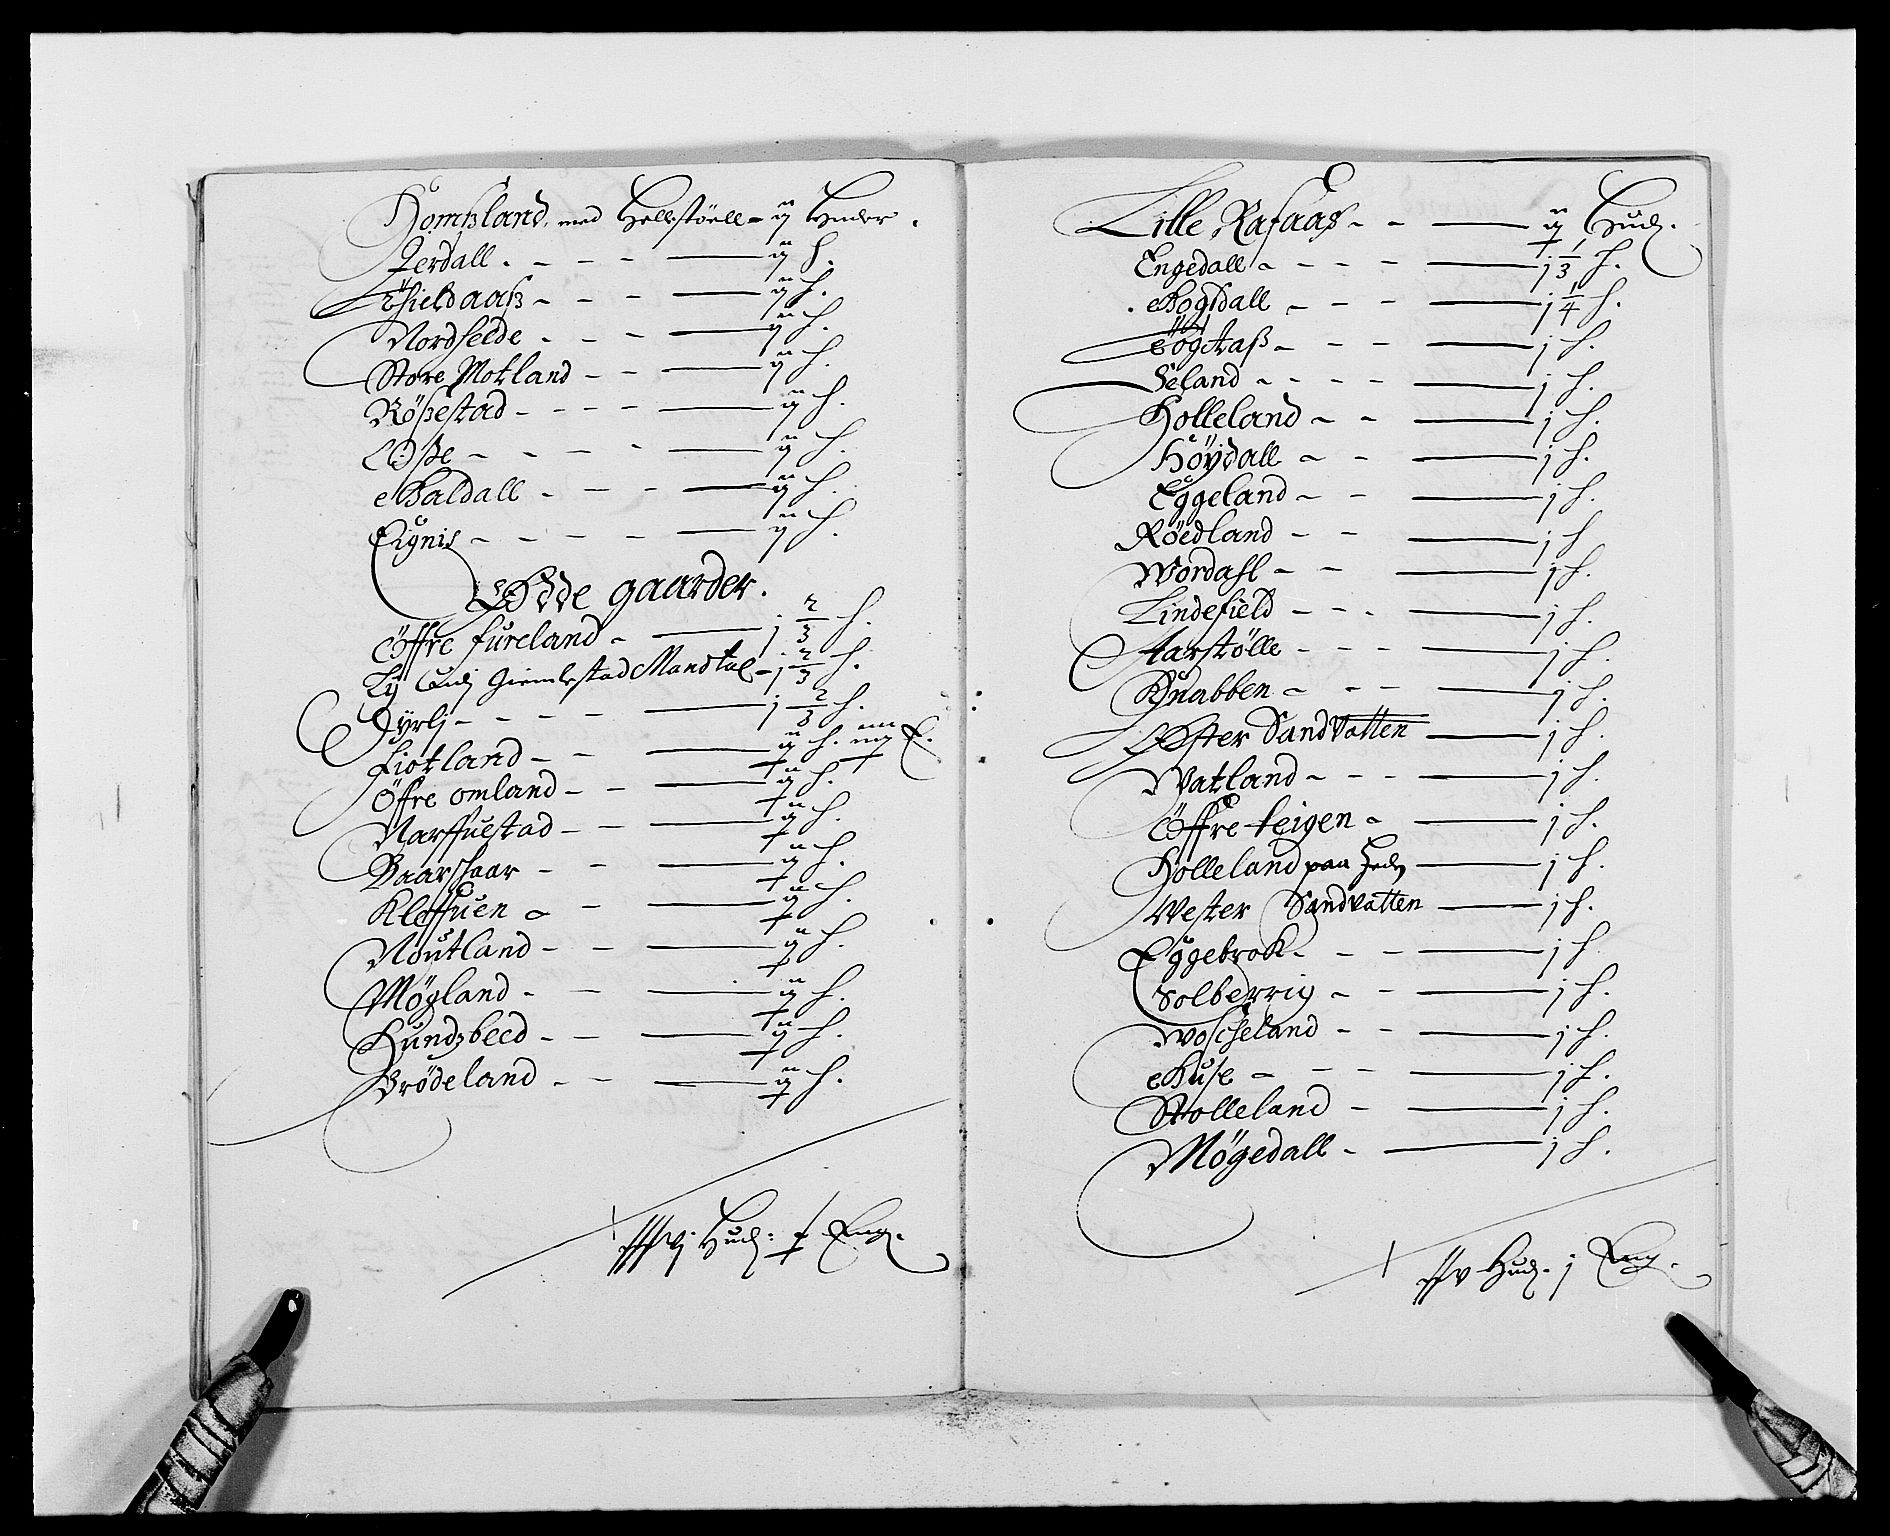 Homßland, med Hellestöell - ij Huder.
Jerdall - - - - ij h.
Schieldaaß - - - ij h.
Nordhelde - - - ij h.
Store Motland - - ij h.
Rößestad - - - - ij h.
Oße - - - - ij h.
Baldall - - - ij h.
Eignis - - - - ij h.
Øde gaarder.
Öffre fureland - j 2/3 h.
Ly Gimlestad Mandtal - j 2/3 h.
Dyrlj - - - - j 2/3 h.
Fiotland - - ij h. iiij E.
Öfre omland - - ij h.
Narffuestad - - ij h.
Baarshaar - - ij h.
Kleffuen - - ij h.
Noutland - - ij h.
Mögland - - ij h.
Hundzbeed - - ij h.
Brödeland - - ij h.
Hud: Eng.
Lille Rafaaß - - ij Hud.
Engedall - - - - j 1/3 h.
Bogsdall - - - j 1/4 h.
Seland - - - - j h.
Holleland - - j h.
Höydall - - j h.
Eggeland - - j h.
Röedland - - j h
Wordahl - - j h.
Lindefield - - - j h.
Aarstölle - - - j h.
Knabben - - - j h.
Öster Sandvatten j h.
Watland - - - j h.
Öffre teigen - j h.
Holleland paa Hedn j h.
Wester Sandvatten j h.
Eggebrok - - - j h.
Solberrig - - j h.
Woscheland - - j h.
Huse - - - j h.
Stolleland - j h.
Mögedall - j h.
Hud. j Eng.